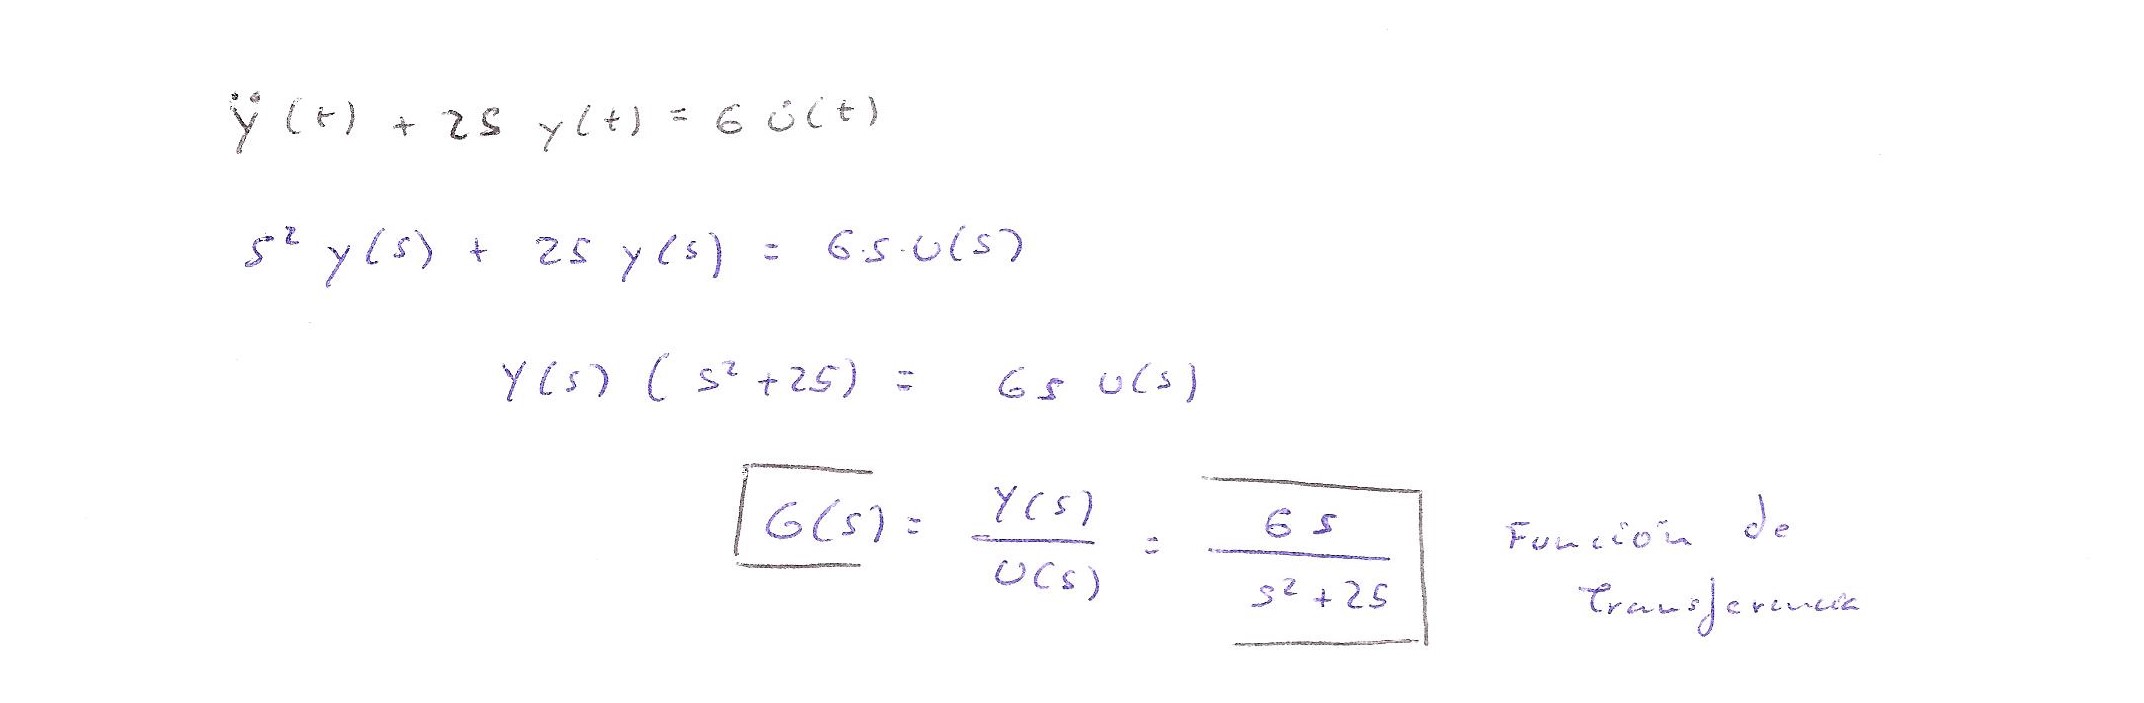 ÿ(t) + 25 y(t) = 6 u̇(t)
s² y(s) + 25 y(s) = 6·s·U(s)
Y(s) ( s² + 25) = 6s U(s)
G(s) = Y(s) / U(s) = 6 s / s² + 25 Función de
transferencia